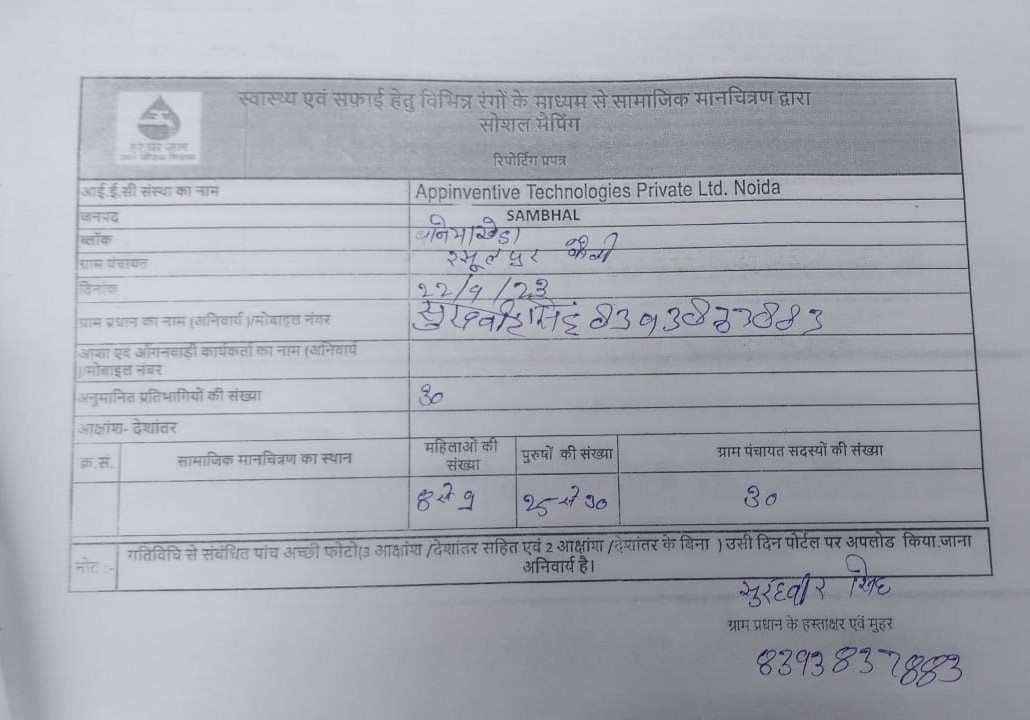 स्वास्थ्य एवं सफ़ाई हेतु विभिन्न रंगों के माध्यम से सामाजिक मानचित्रण द्वारा
सोशल मैपिंग
हर घर जल
जल जीवन मिशन
रिपोर्टिंग प्रपत्र
आई.ई.सी संस्था का नाम Appinventive Technologies Private Ltd. Noida
जनपद SAMBHAL
ब्लॉक बनियाखेडा
ग्राम पंचायत रसूलपुर कैली
दिनांक 22/9/23
ग्राम प्रधान का नाम (अनिवार्य )/मोबाइल नंबर सुखवीर सिंह 8393837883
आशा एवं आँगनवाड़ी कार्यकर्ता का नाम (अनिवार्य
)/मोबाइल नंबर
अनुमानित प्रतिभागियों की संख्या 30
आक्षांश- देशांतर
क्र.सं. सामाजिक मानचित्रण का स्थान महिलाओं की संख्या पुरुषों की संख्या ग्राम पंचायत सदस्यों की संख्या
8 से 9 25 से 30 30
नोट :- गतिविधि से संबंधित पांच अच्छी फोटो(3 आक्षांश /देशांतर सहित एवं 2 आक्षांश /देशांतर के बिना ) उसी दिन पोर्टल पर अपलोड किया जाना
अनिवार्य है।
सुखवीर सिंह
ग्राम प्रधान के हस्ताक्षर एवं मुहर
8393837883